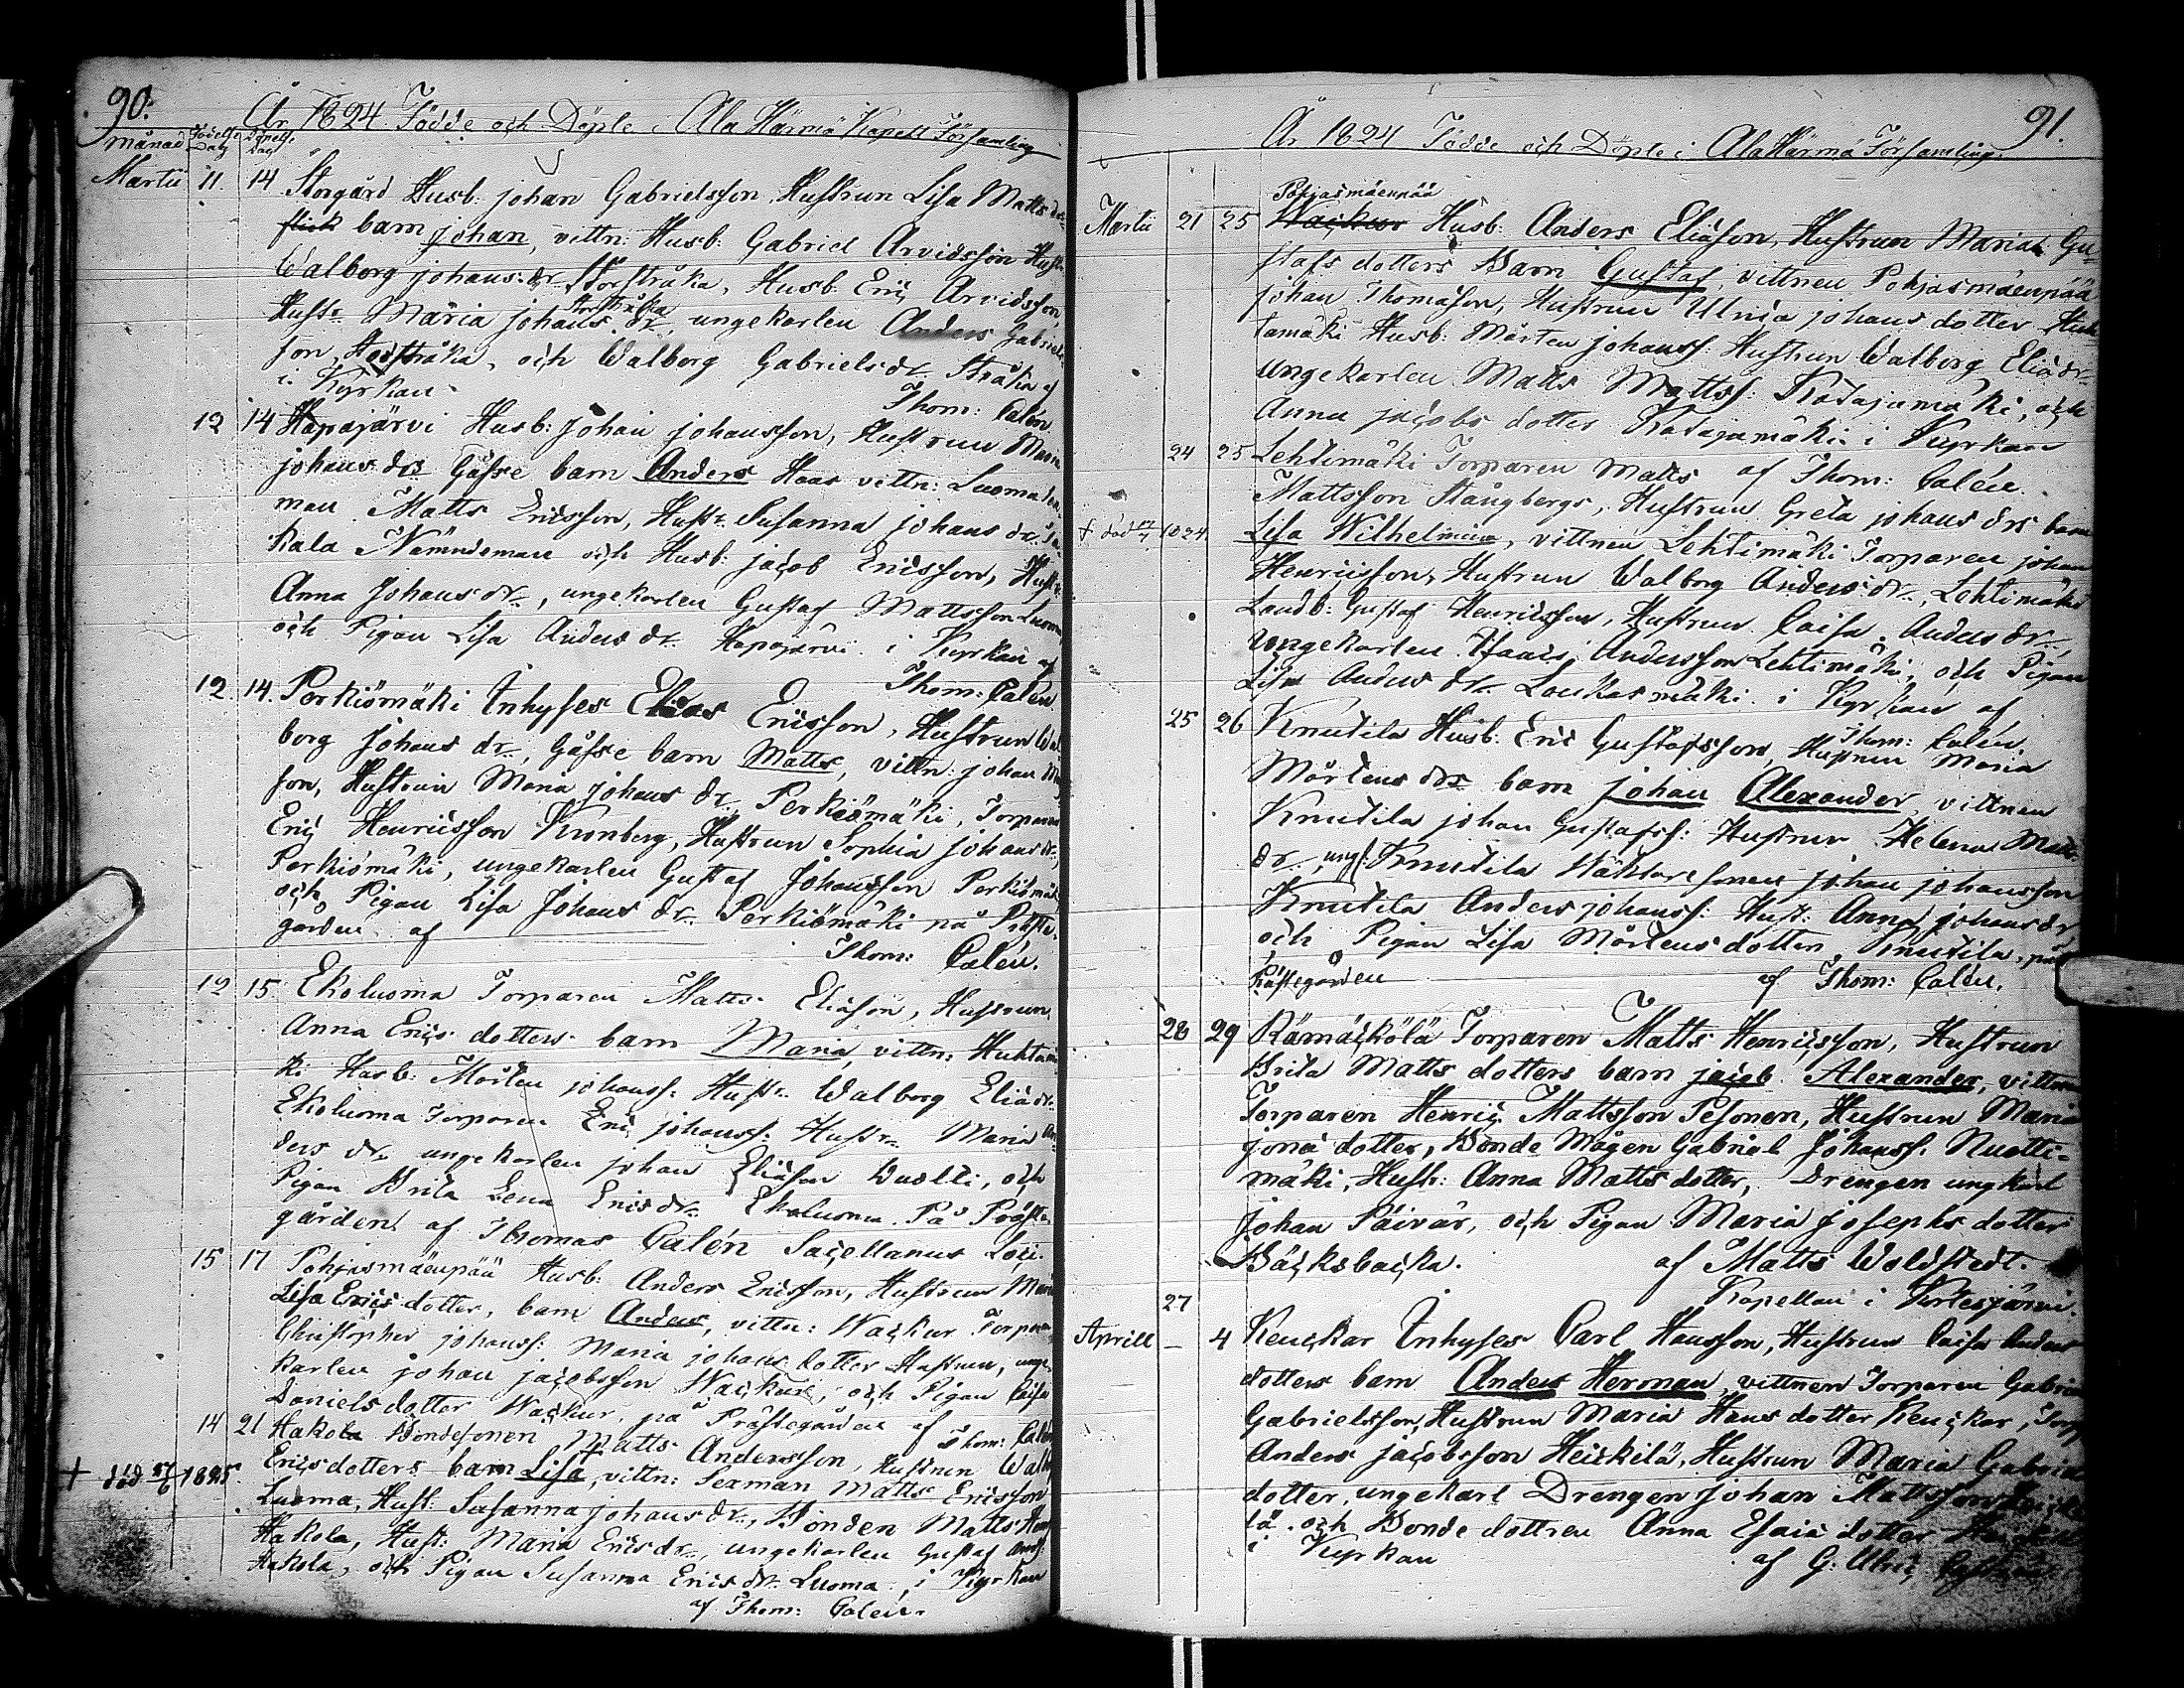 90.
År 1824. Födde och Döpte i Ala Härmä Kapell Församling
månad Födelse Dag Döpelse Dag
Martii 11. 14 Storgård Husb: johan Gabrielsson, Hustrun Lisa Matts dr
flick barn johan, vittn: Husb: Gabriel Arvidsson Hustr
Walborg johans: dr Storstråka, Husb: Eric Arvidsson,
Hustr Maria johans dr Storstråka, ungekarlen Anders Gabriels
son Storstråka, och Walborg Gabrielsdr Stråka af
i Kyrkan Thom: Calén
12 14 Hapajärvi Husb: johan johansson, Hustrun Maria
johans drs Gåsse barn Anders Haas vittn: Luoma
man Matts Ericsson, Hustr Susanna johans dr
kala Nämndeman och Husb: jacob Ericsson, Hustr
Anna Johans dr, ungekarlen Gustaf Mattsson Luoma
och Pigan Lisa Anders dr Hapajärvi i Kyrkan af
Thom: Calén
12 14. Perkiömäki Inhyses Elias Ericsson, Hustrun Wal
borg Johans dr, Gåsse barn Matts, vittn: johan
son, Hustrun Maria johans dr Perkiömäki, Torparen
Eric Henricsson Kronberg, Hustrun Sophia johans dr,
Perkiömäki, ungekarlen Gustaf Johansson Perkiömäki
och Pigan Lisa Johans dr Perkiömäki på Präste
gården af Thom: Calén.
12 15 Ekoluoma Torparen Matts Eliäson, Hustrun
Anna Erics dotters barn Maria, vittn: Huhtamä
ki Husb: Mårten johanss: Hustr Walborg Eliädr
Ekoluoma Torparen Eric johanss: Hustr Maria An
ders dr ungekarlen johan Eliäson Wuolli, och
Pigan Brita Lena Ericsdr Ekoluoma. På Präste
gården af Thomas Calén Sacellanus Loci.
15 17 Pohjasmäenpää Husb: Anders Ericsson, Hustrun Maria
Lisa Erics dotter, barn Anders, vittn: Wackur Torparen
Christopher johanss: Maria johans dotter Hustrun, unge
karlen johan jacobsson Wackuri, och Pigan Caisa
Daniels dotter Wackur, på Prästegården af Thom: Calén
14 21 Hakola Bondesonen Matts Andersson, Hustrun Walb
Ericsdotters barn Lisa, vittn: Sexman Matts Ericsson
† död 27/6 1825.
Luoma, Hust: Susanna johans dr, Bonden Matts
Hakola, Hust: Maria Ericsdr, ungekarlen Gustaf And
Hakola, och Pigan Susanna Erics dr Luoma, i Kyrkan
af Thom: Calén.
91.
År 1824 Födde och Döpte i Ala Härmä Församling.
Pohjasmäenpää
Martii 21 25 Wackur Husb: Anders Eliäson, Hustrun Maria Gu-
stafs dotters Barn Gustaf, vittnen Pohjasmäenpää
johan Thomason, Hustrun Ulrica johans dotter Huh
tamäki Husb: Mårten johanss: Hustrun Walborg Eliädr
Ungekarlen Matts Mattss: Katajamäki, och
Anna jacobs dotter Katajamäki i Kyrkan
af Thom: Calén.
24 25 Lehtimäki Torparen Matts
Mattsson Stångbergs, Hustrun Greta johans drs barn
† död 1824.
Lisa Wilhelmina, vittnen Lehtimäki Torparen johan
Henricsson, Hustrun Walborg Anders dr, Lehtimäki
Landb: Gustaf Henricsson, Hustrun Caisa Anders dr,
Ungekarlen Haais Andersson Lehtimäki, och Pigan
Lisa Anders dr Loukasmäki i Kyrkan af
Thom: Calén.
25 26 Knutila Husb: Eric Gustafsson, Hustrun Maria
Mårtens drs barn johan Alexander vittnen
Knutila johan Gustafss: Hustrun Helena Matts
dr, ungk: Knutila Wäktare sonen johan johansson
Knutila Anders johanss: Hust: Anna johansdr
och Pigan Lisa Mårtens dotter Knutila, på
Prästegården af Thom: Calén.
28 29 Rämäckölä Torparen Matts Henricsson, Hustrun
Brita Matts dotters barn jacob Alexander, vittnen
Torparen Henric Mattsson Pesonen, Hustrun Maria
jona dotter, Bonde Mågen Gabriel Johanss: Nuotti-
mäki, Hustr: Anna Matts dotter, Drengen ungkarl
Johan Päivär, och Pigan Maria Josephs dotter
Bäcksbacka. af Matts Woldstedt.
Kapellan i Kortesjärvi.
27
Aprill – 4 Keuckar Inhyses Carl Hansson, Hustrun Caisa Anders
dotters barn Anders Herman, vittnen Torparen Gabriel
Gabrielsson, Hustrun Maria Hans dotter Keuckar, Torp
Anders jacobsson Heickilä, Hustrun Maria Gabriels
dotter, ungekarl Drengen johan Mattsson
lä och Bonde dottren Anna Esaiä dotter
i Kyrkan af G. Ulric